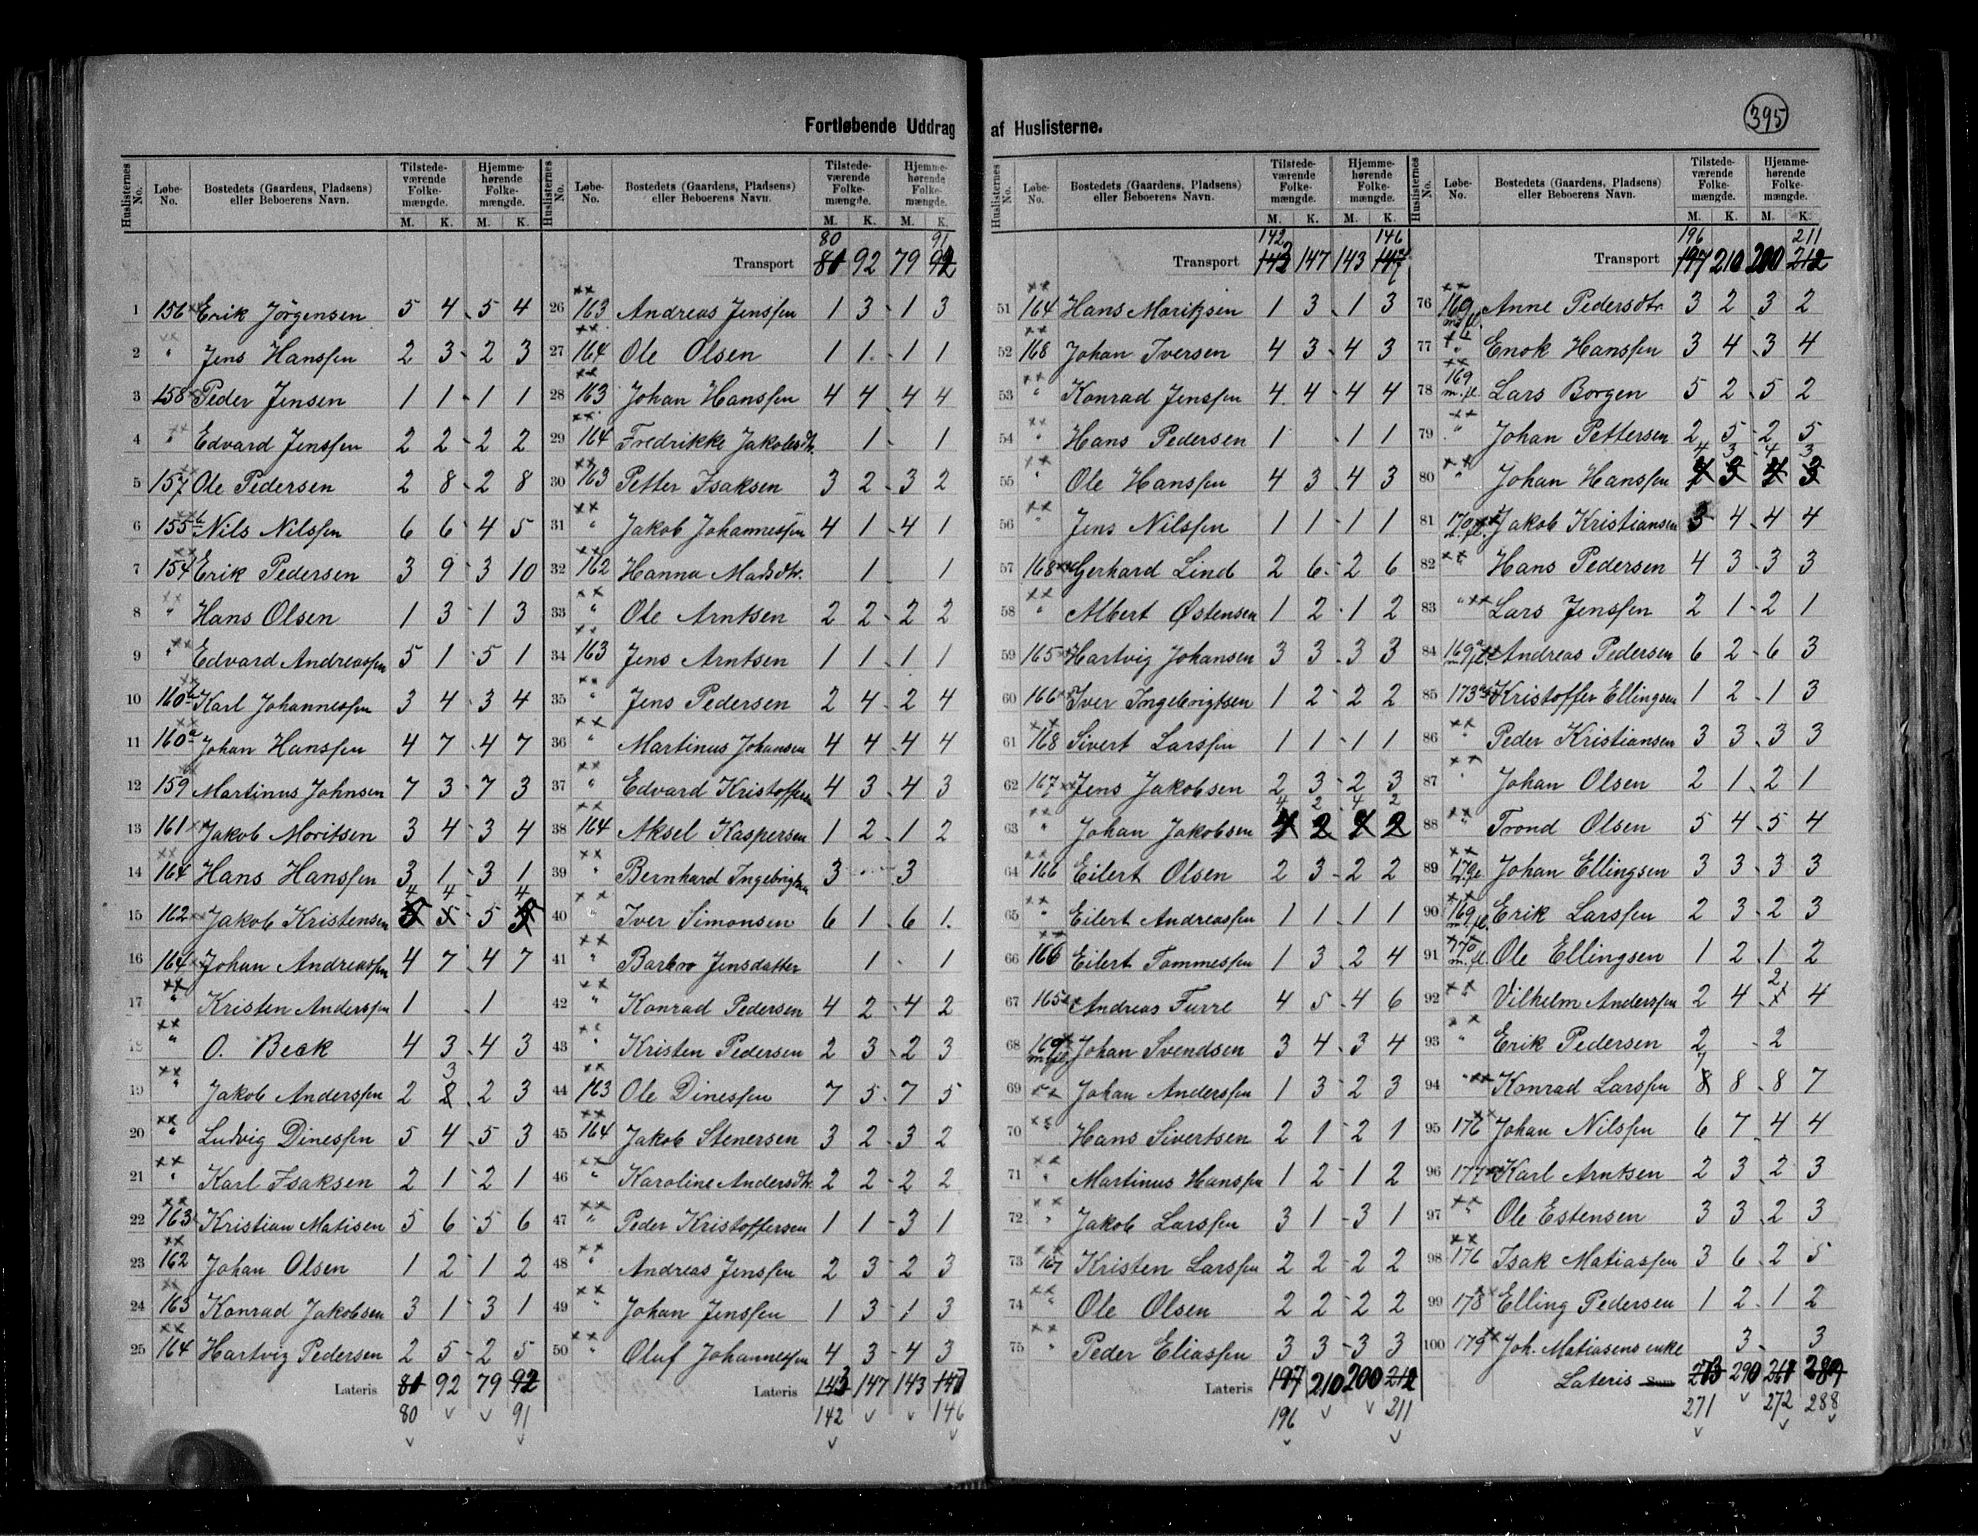 395
Fortløbende Uddrag af Huslisterne.
Huslisternes No. Løbe-No. Bostedets (Gaardens, Pladsens) eller Beboerens Navn. Tilstedeværende Folkemængde. M. K. Hjemmehørende Folkemængde. M. K.
1 156 Erik Jörgensen 5 4 5 4
2 " Jens Hanssen 2 3 2 3
3 158 Peder Jensen 1 1 1 1
4 " Edvard Jenssen 2 2 2 2
5 157 Ole Pedersen 2 8 2 8
6 155b Nils Nilssen 6 6 4 5
7 154 Erik Pedersen 3 9 3 10
8 " Hans Olsen 1 3 1 3
9 " Edvard Andreassen 5 1 5 1
10 160b Karl Johannessen 3 4 3 4
11 160a Johan Hanssen 4 7 4 7
12 159 Martinus Johnsen 7 3 7 3
13 161 Jakob Moritsen 3 4 3 4
14 164 Hans Hanssen 3 1 3 1
15 162 Jakob Kristensen 4 4 5 4
16 164 Johan Andreassen 4 7 4 7
17 " Kristen Anderssen 1 1
18 " O. Beck 4 3 4 3
19 " Jakob Anderssen 2 3 2 3
20 " Ludvig Dinessen 5 4 5 3
21 " Karl Isaksen 2 1 2 1
22 163 Kristian Matisen 5 6 5 6
23 162 Johan Olsen 1 2 1 2
24 163 Konrad Jakobsen 3 1 3 1
25 164 Hartvig Pedersen 2 5 2 5
Lateris 81 92 79 92
80 91
Huslisternes No. Løbe-No. Bostedets (Gaardens, Pladsens) eller Beboerens Navn. Tilstedeværende Folkemængde. M. K. Hjemmehørende Folkemængde. M. K.
80 91
Transport 81 92 79 92
26 163 Andreas Jenssen 1 3 1 3
27 164 Ole Olsen 1 1 1 1
28 163 Johan Hanssen 4 4 4 4
29 164 Fredrikke Jakobsdtr. 1 1
30 163 Petter Isaksen 3 2 3 2
31 " Jakob Johannessen 4 1 4 1
32 162 Hanna Madsdtr. 1 1
33 " Ole Arntsen 2 2 2 2
34 163 Jens Arntsen 1 1 1 1
35 " Jens Pedersen 2 4 2 4
36 " Martinus Johansen 4 4 4 4
37 " Edvard Kristoffersen 4 3 4 3
38 164 Aksel Kaspersen 1 2 1 2
39 " Bernhard Ingebrigtsen 3 3
40 " Iver Simonsen 6 1 6 1.
41 " Barbro Jensdatter 1 1
42 " Konrad Pedersen 4 2 4 2
43 " Kristen Pedersen 2 3 2 3
44 163 Ole Dinessen 7 5 7 5
45 164 Jakob Stenersen 3 2 3 2
46 " Karoline Andersdtr. 2 2 2 2
47 " Peder Kristoffersen 1 1 3 1
48 " Andreas Jenssen 2 3 2 3
49 " Johan Jenssen 1 3 1 3
50 " Oluf Johannessen 4 3 4 3
Lateris 143 147 143 147
142 146
Huslisternes No. Løbe-No. Bostedets (Gaardens, Pladsens) eller Beboerens Navn. Tilstedeværende Folkemængde. M. K. Hjemmehørende Folkemængde. M. K.
142 146
Transport 143 147 143 147
51 164 Hans Moritzsen 1 3 1 3
52 168 Johan Iversen 4 3 4 3
53 " Konrad Jenssen 4 4 4 4
54 " Hans Pedersen 1 1 1
55 " Ole Hanssen 4 3 4 3
56 " Jens Nilssen 1 1 1 1
57 168 Gerhard Lind 2 6 2 6
58 " Albert Østensen 1 2 1 2
59 165 Hartvig Johansen 3 3 3 3
60 166 Iver Ingebrigtsen 1 2 2 2
61 168 Sivert Larssen 1 1 1 1
62 167 Jens Jakobsen 2 3 2 3
63 " Johan Jakobsen 4 2 4 2
64 166 Eilert Olsen 2 3 2 2
65 " Eilert Andreassen 1 1 1 1
66 166 Eilert Tommessen 1 3 2 4
67 165 Andreas Furre 4 5 4 6
68 169 m.fl. Johan Svendsen 3 4 3 4
69 Johan Anderssen 1 3 2 3
70 " Hans Sivertsen 2 1 2 1
71 " Martinus Hanssen 1 2 1 2
72 " Jakob Larssen 3 1 3 1
73 167 Kristen Larssen 2 2 2 2
74 " Ole Olsen 2 2 2 2
75 " Peder Eliassen 3 3 3 3
Lateris 197 210 200 212
196 211
Huslisternes No. Løbe-No. Bostedets (Gaardens, Pladsens) eller Beboerens Navn. Tilstedeværende Folkemængde. M. K. Hjemmehørende Folkemængde. M. K.
196 211
Transport 197 210 200 212
76 169 m.fl. Anne Pedersdtr. 3 2 3 2
77 " Enok Hanssen 3 4 3 4
78 169 m.fl. Lars Borgen 5 2 5 2
79 " Johan Pettersen 2 5 2 5
80 " Johan Hanssen 4 3 4 3
81 170 m.fl. Jakob Kristiansen 3 4 4 4
82 " Hans Pedersen 4 3 3 3
83 " Lars Jenssen 2 1 2 1
84 169a m.fl. Andreas Pedersen 6 2 6 3
85 173 Kristoffer Ellingsen 1 2 1 3
86 " Peder Kristiansen 3 3 3 3
87 " Johan Olsen 2 1 2 1
88 " Trond Olsen 5 4 5 4
89 Johan Ellingsen 3 3 3 3
90 169 m.fl. Erik Larssen 2 3 2 3
91 170 m.fl. Ole Ellingsen 1 2 1 2
92 " Vilhelm Anderssen 2 4 2 4
93 " Erik Pedersen 2 2
94 " Konrad Larssen 7 8 8 7
95 176 Johan Nilssen 6 7 4 4
96 177 Karl Arntsen 2 3 2 3
97 " Ole Estensen 3 3 2 3
98 176 Isak Matiassen 3 6 2 5
99 178 Elling Pedersen 1 2 1 2
100 179 Joh. Matiasens enke 3 3
Lateris Sum 273 290 271 289
271 272 288